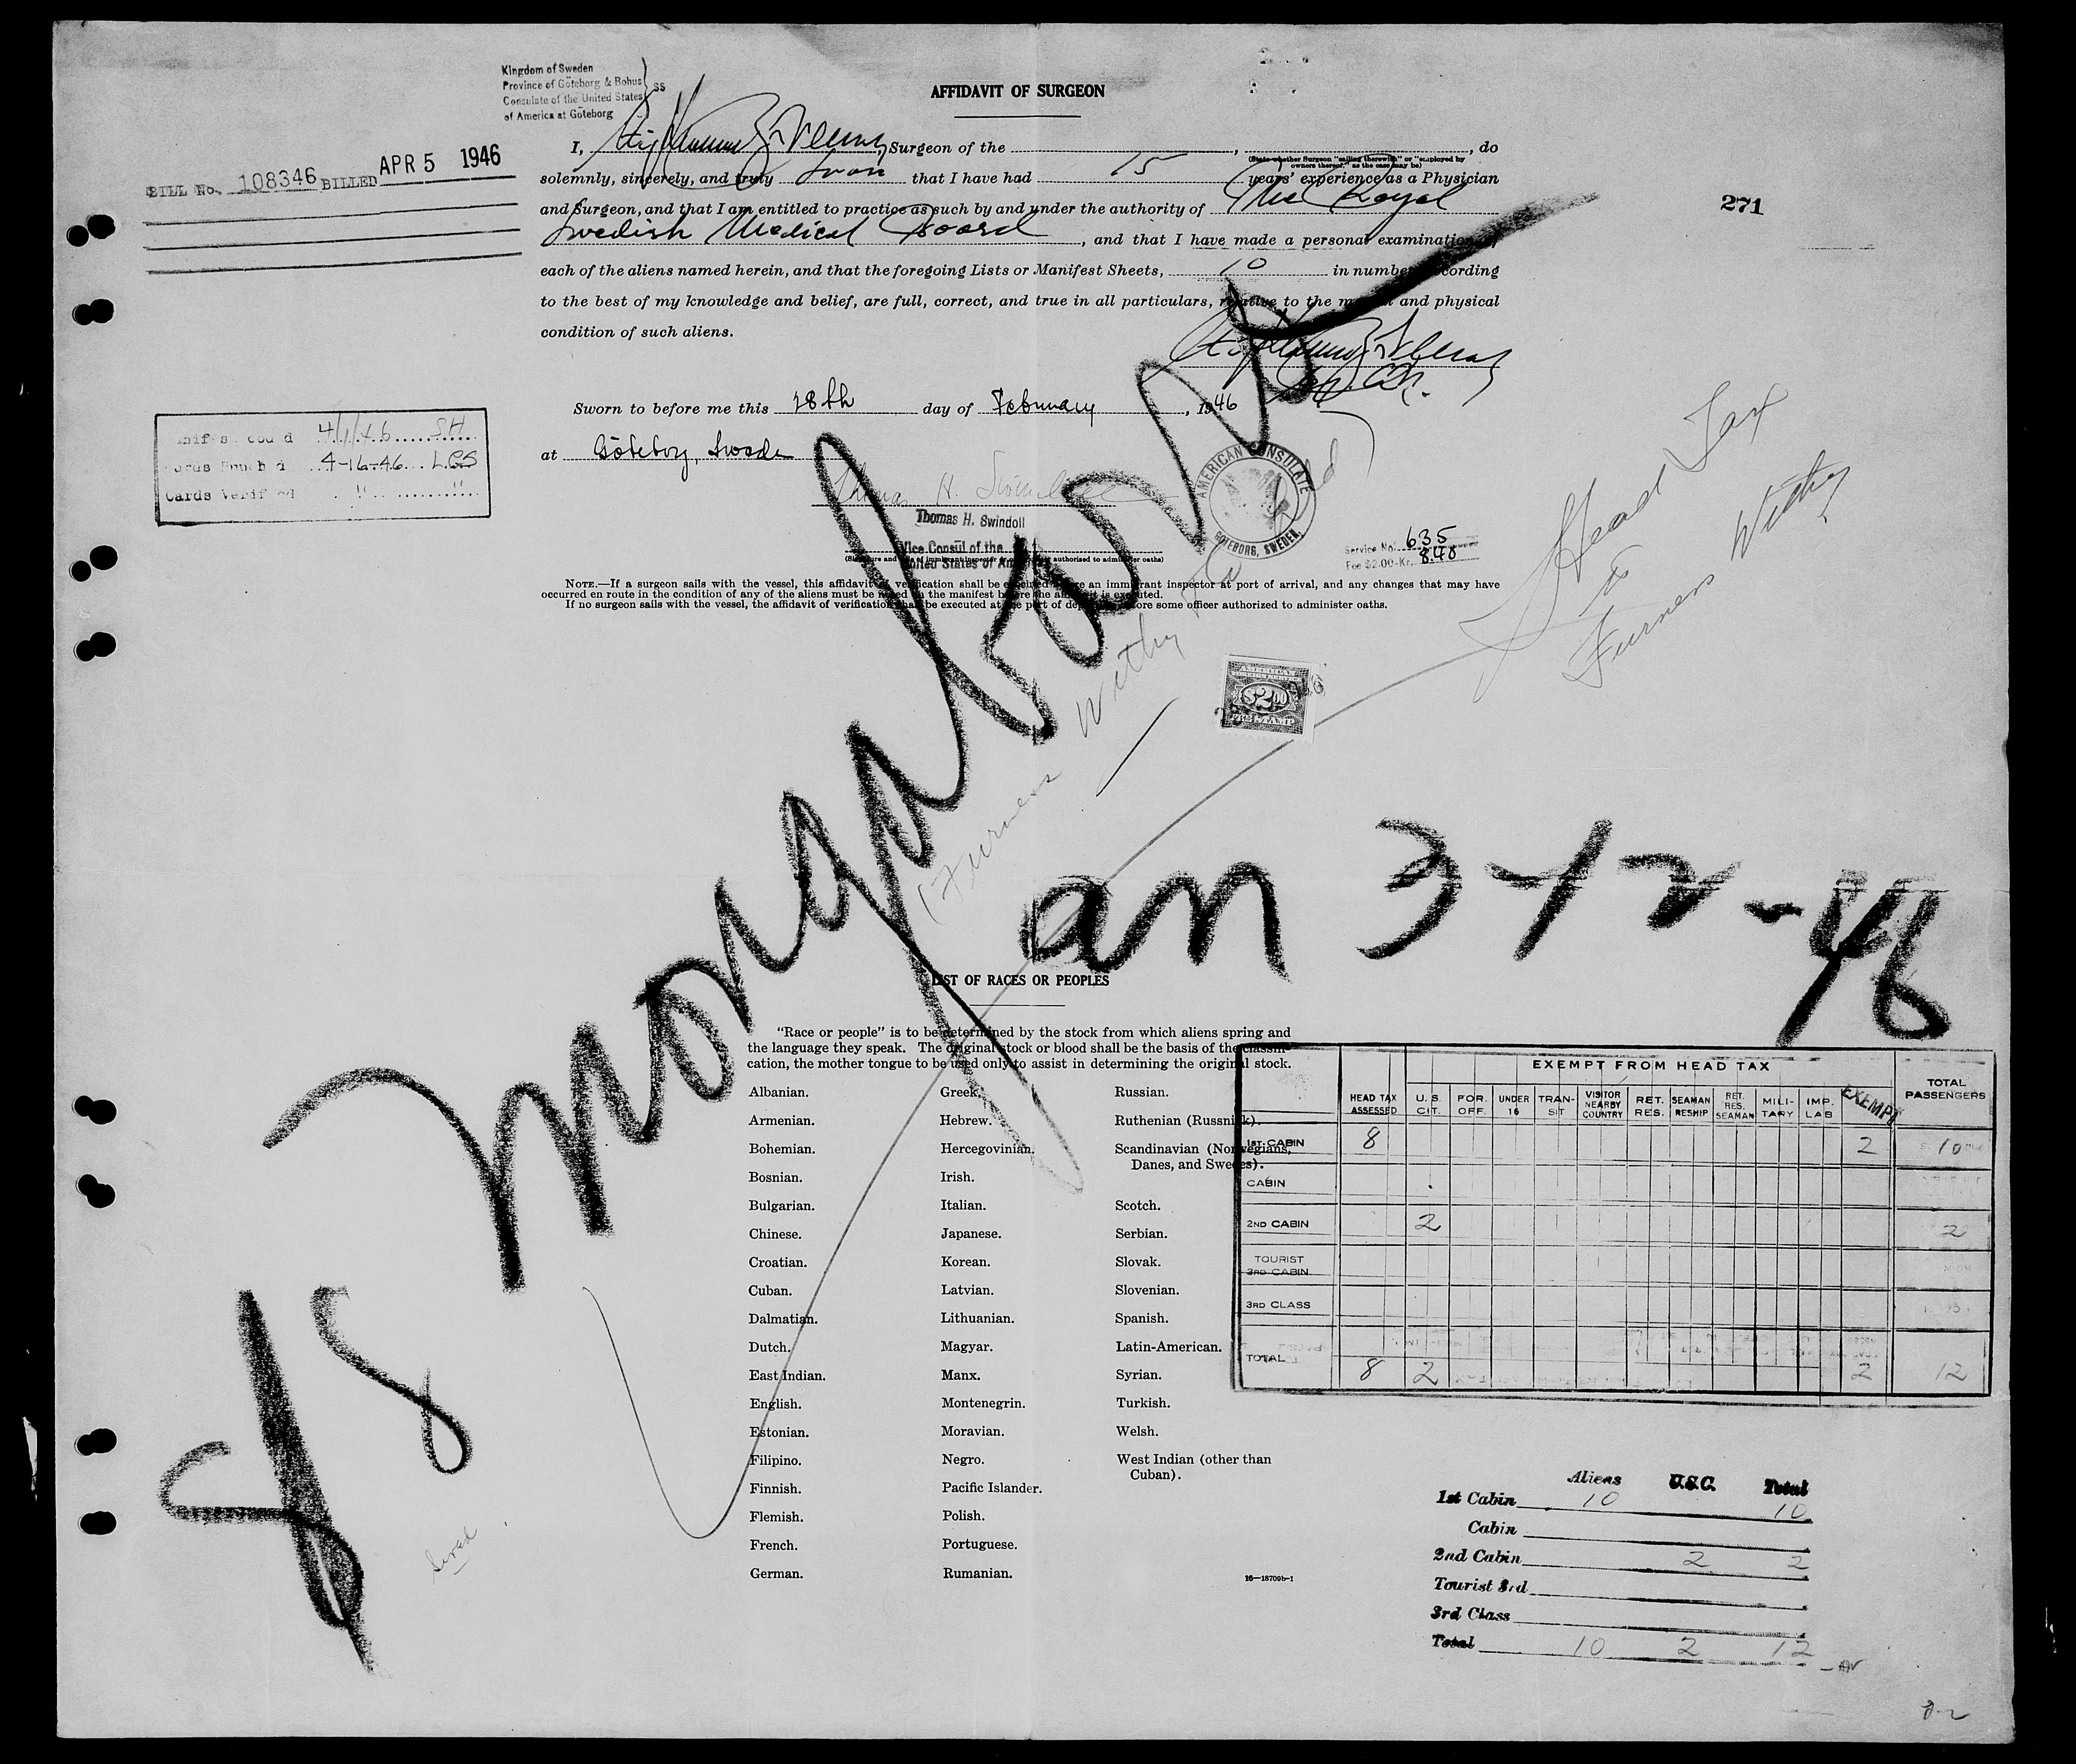 Kingdom of Sweden
Province of Göteborg & Bohus
Consulate of the United States
of America at Göteborg
SS
AFFIDAVIT OF SURGEON
BILL No. 108346 BILLED APR 5 1946
271
I, , Surgeon of the , , do
(State whether Surgeon "sailing therewith" or "employed by
owners thereof," as the case may be)
solemnly, sincerely, and truly that I have had 15 years' experience as a Physician
and Surgeon, and that I am entitled to practice as such by and under the authority of The Royal
Swedish Medical Board, and that I have made a personal examination of
each of the aliens named herein, and that the foregoing Lists or Manifest Sheets, 10 in number, according
to the best of my knowledge and belief, are full, correct, and true in all particulars, relative to the mental and physical
condition of such aliens.
Sworn to before me this 28th day of February, 1946
at Göteborg, Sweden
4/1/46 SH
4-16-46 LCS
Cards Verified " "
Thomas H. Swindoll
Vice Consul of the
United States of America
AMERICAN CONSULATE
GOTEBORG, SWEDEN.
Service No. 635
Fee $2.00-Kr. 8.40
NOTE.—If a surgeon sails with the vessel, this affidavit of verification shall be executed before an immigrant inspector at port of arrival, and any changes that may have
occurred en route in the condition of any of the aliens must be noted on the manifest before the affidavit is executed.
If no surgeon sails with the vessel, the affidavit of verification shall be executed at the port of departure before some officer authorized to administer oaths.
Head Tax
to
Furness Withy
Furness Withy
AMERICAN
$2.00
FEE STAMP
S/S
an 3-12-46
LIST OF RACES OR PEOPLES
"Race or people" is to be determined by the stock from which aliens spring and
the language they speak. The original stock or blood shall be the basis of the classifi-
cation, the mother tongue to be used only to assist in determining the original stock.
Albanian.
Armenian.
Bohemian.
Bosnian.
Bulgarian.
Chinese.
Croatian.
Cuban.
Dalmatian.
Dutch.
East Indian.
English.
Estonian.
Filipino.
Finnish.
Flemish.
French.
German.
Greek.
Hebrew.
Hercegovinian.
Irish.
Italian.
Japanese.
Korean.
Latvian.
Lithuanian.
Magyar.
Manx.
Montenegrin.
Moravian.
Negro.
Pacific Islander.
Polish.
Portuguese.
Rumanian.
Russian.
Ruthenian (Russniak).
Scandinavian (Norwegians,
Danes, and Swedes).
Scotch.
Serbian.
Slovak.
Slovenian.
Spanish.
Latin-American.
Syrian.
Turkish.
Welsh.
West Indian (other than
Cuban).
16—18709b-1
EXEMPT FROM HEAD TAX
HEAD TAX ASSESSED U. S. CIT. FOR. OFF. UNDER 16 TRANSIT VISITOR NEARBY COUNTRY RET. RES. SEAMAN RESHIP RET. RES. SEAMAN MILITARY IMP. LAB EXEMPT TOTAL PASSENGERS
1ST CABIN 8 2 10
CABIN
2ND CABIN 2 2
TOURIST
3RD CABIN
3RD CLASS
TOTAL 8 2 2 12
Aliens U.S.C. Total
1st Cabin 10 10
Cabin
2nd Cabin 2 2
Tourist 3rd
3rd Class
Total 10 2 12